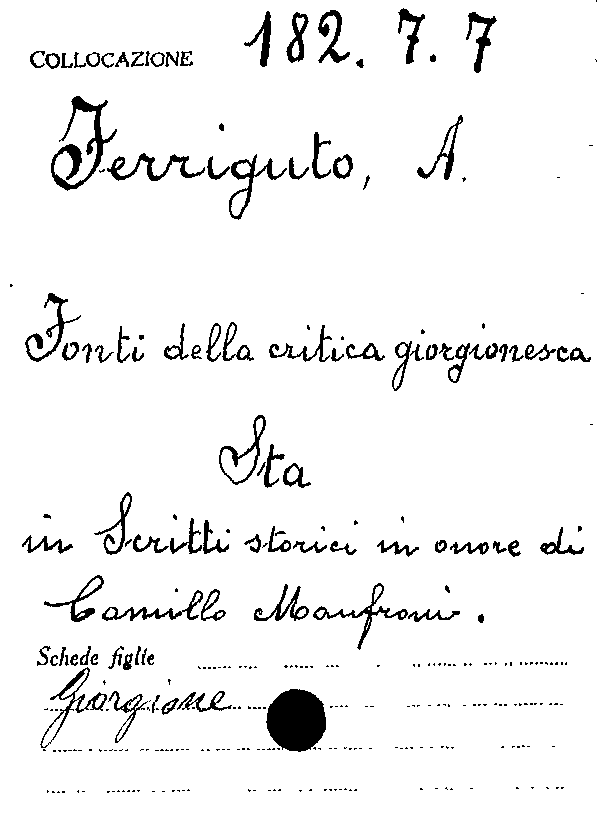 COLLOCAZIONE 182.7.7
Ferriguto, A.
Fonti della critica giorgionesca
Sta
in Scritti storici in onore di
Camillo Manfroni.
Schede figlie
Giorgione